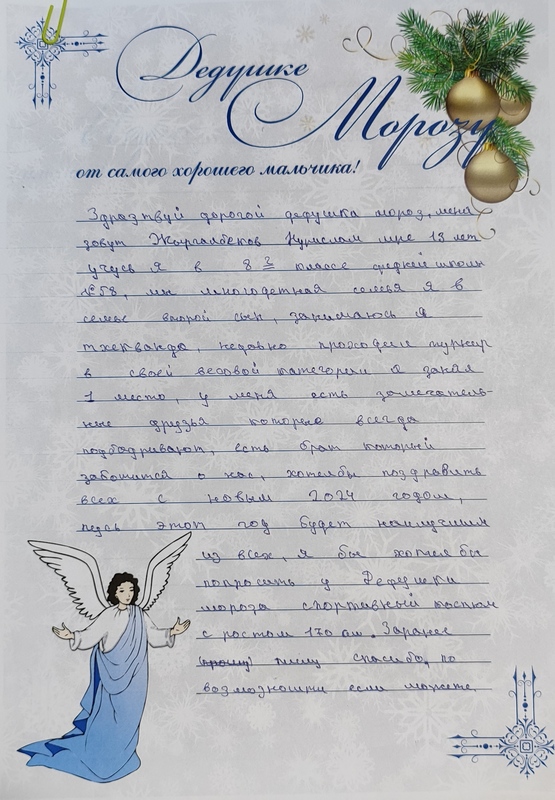 Дедушке
Морозу
от самого хорошего мальчика!
Здраствуй дорогой дедушка мороз, меня
зовут Жырсалбеков Нурислам мне 13 лет
учусь я в 8 класс средней школы
№58, мы многодетная семья я в
семье второй сын, занимаюсь я
тхеквандо, недавно проходил турнир
в своей весовой категории я занял
1 место, у меня есть замечатель-
ные друзья которые всегда
подбадривают, есть брат который
заботится о нас, хотелбы поздравить
всех с новым 2024 годом,
пусь этот год будет наилучшим
из всех, я бы хотел бы
попросить у Дедушки
мороза спортивный костюм
с ростом 170 см. Заранее
пишу спасибо, по
возможности если можете.